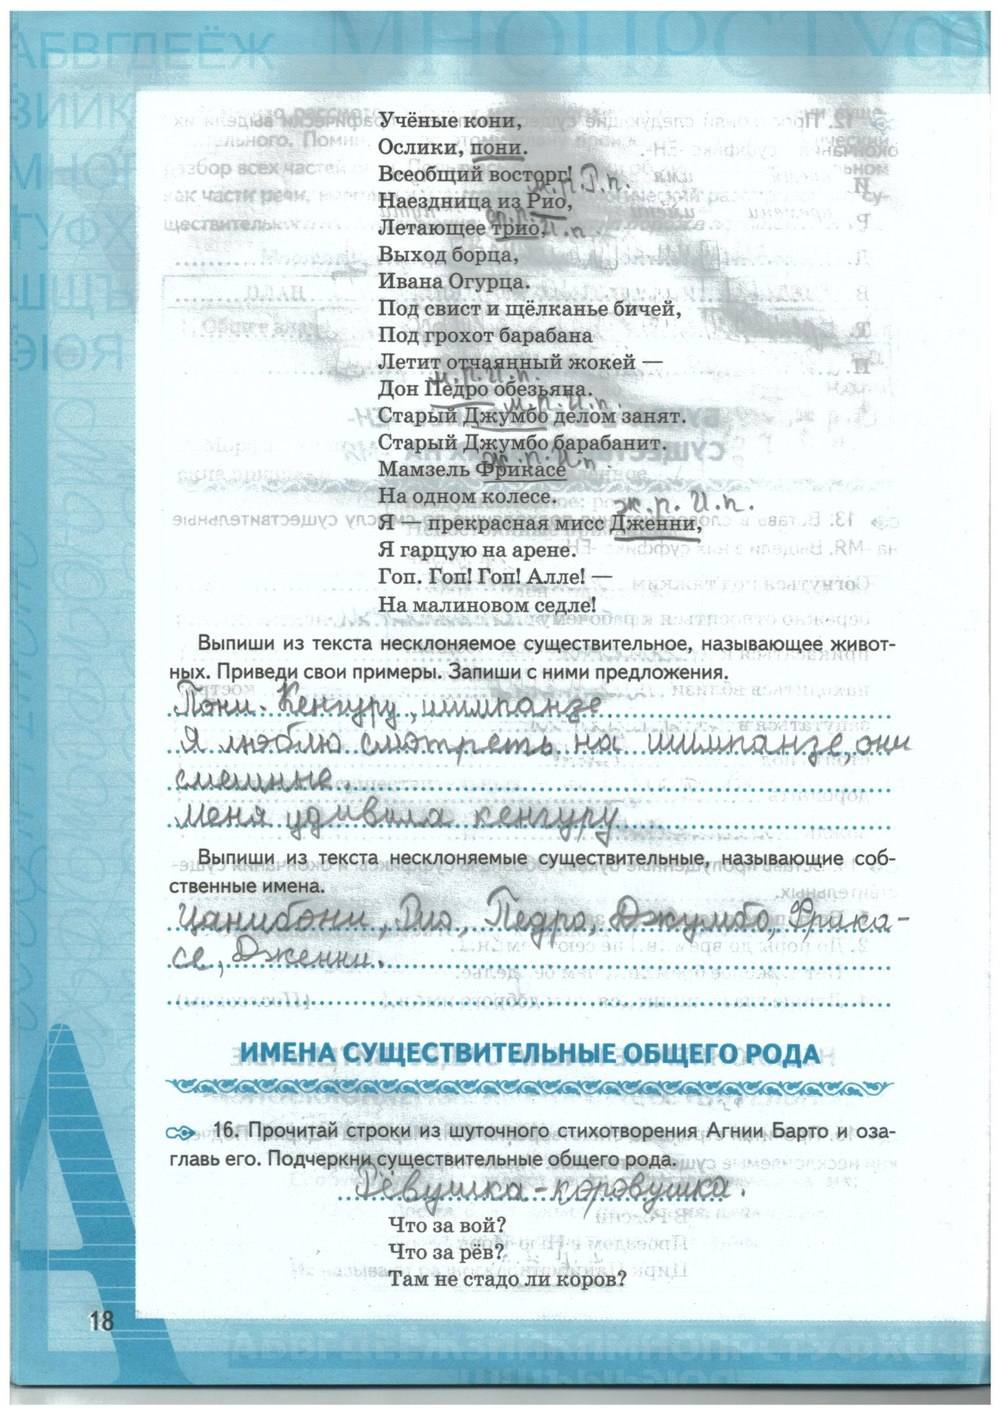 АБВГДЕЁЖ
Учёные кони,
Ослики, пони.
Всеобщий восторг!
м.р. Р.п.
Наездница из Рио,
ср.р. И.п.
Летающее трио.
Выход борца,
Ивана Огурца.
Под свист и щёлканье бичей,
Под грохот барабана
Летит отчаянный жокей —
м.р. И.п.
Дон Педро обезьяна.
м.р. И.п.
Старый Джумбо делом занят.
Старый Джумбо барабанит.
ж.р. И.п.
Мамзель Фрикасе
На одном колесе.
ж.р. И.п.
Я — прекрасная мисс Дженни,
Я гарцую на арене.
Гоп. Гоп! Гоп! Алле! —
На малиновом седле!
Выпиши из текста несклоняемое существительное, называющее живот-
ных. Приведи свои примеры. Запиши с ними предложения.
Пони. Кенгуру, шимпанзе
Я люблю смотреть на шимпанзе, они
смешные.
Меня удивила кенгуру
Выпиши из текста несклоняемые существительные, называющие соб-
ственные имена.
Цанибони, Рио, Педро, Джумбо, Фрика-
се, Дженни.
ИМЕНА СУЩЕСТВИТЕЛЬНЫЕ ОБЩЕГО РОДА
16. Прочитай строки из шуточного стихотворения Агнии Барто и оза-
главь его. Подчеркни существительные общего рода.
Рёвушка-коровушка.
Что за вой?
Что за рёв?
Там не стадо ли коров?
18